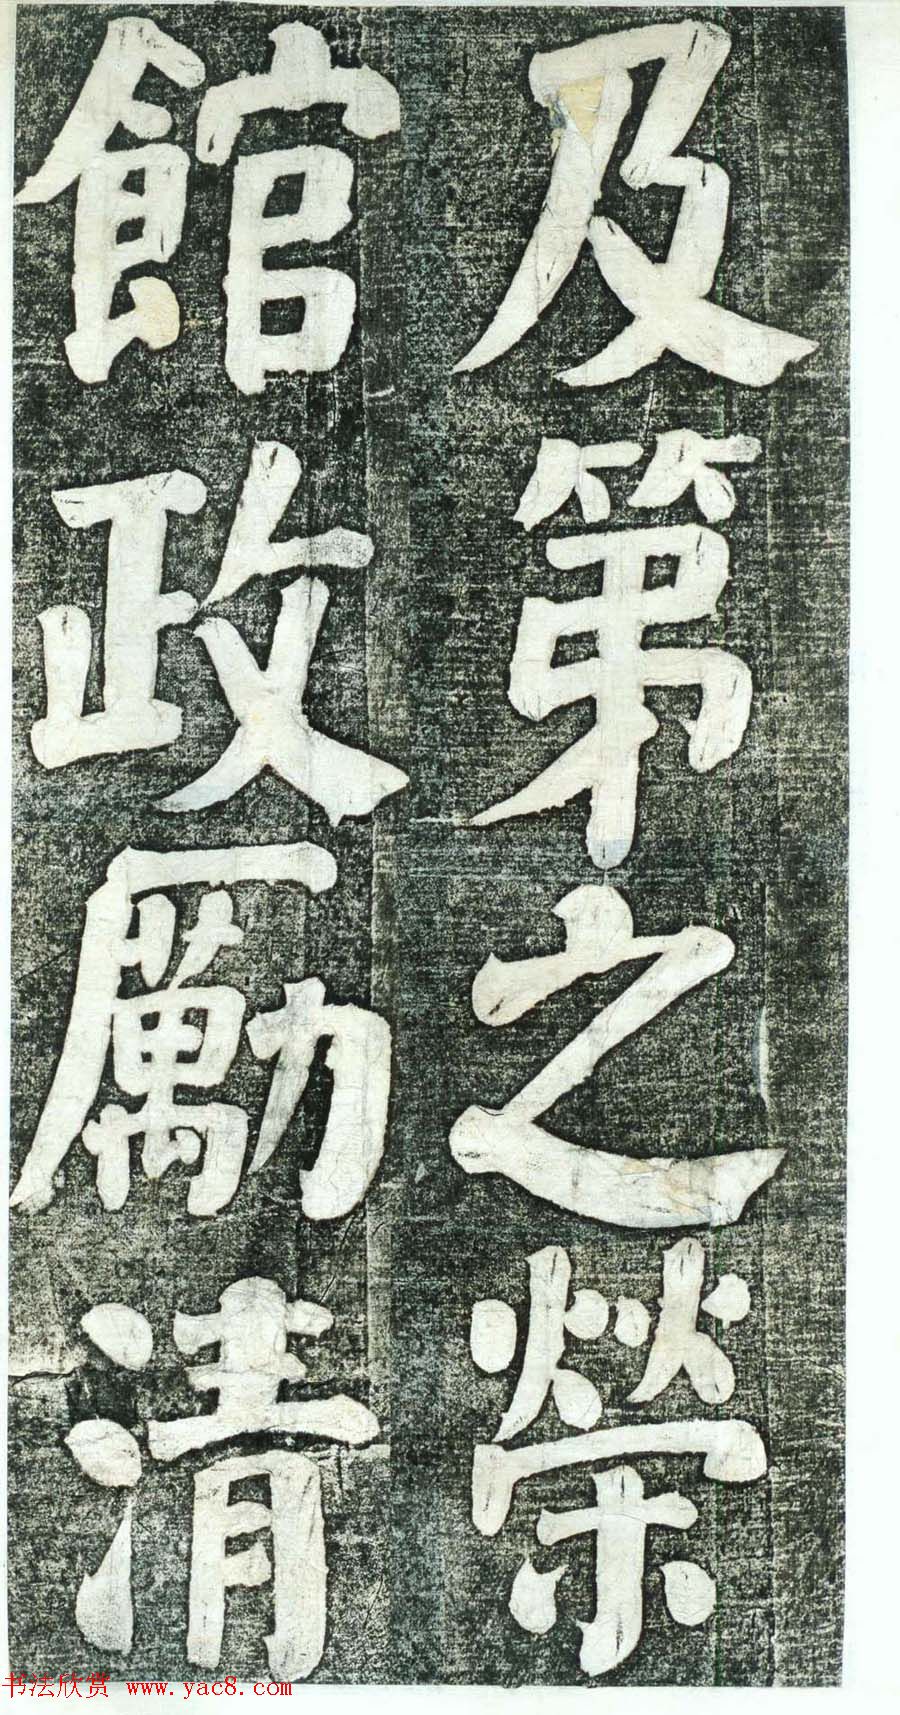 及第之榮
館政勵清
书法欣赏 www.yac8.com